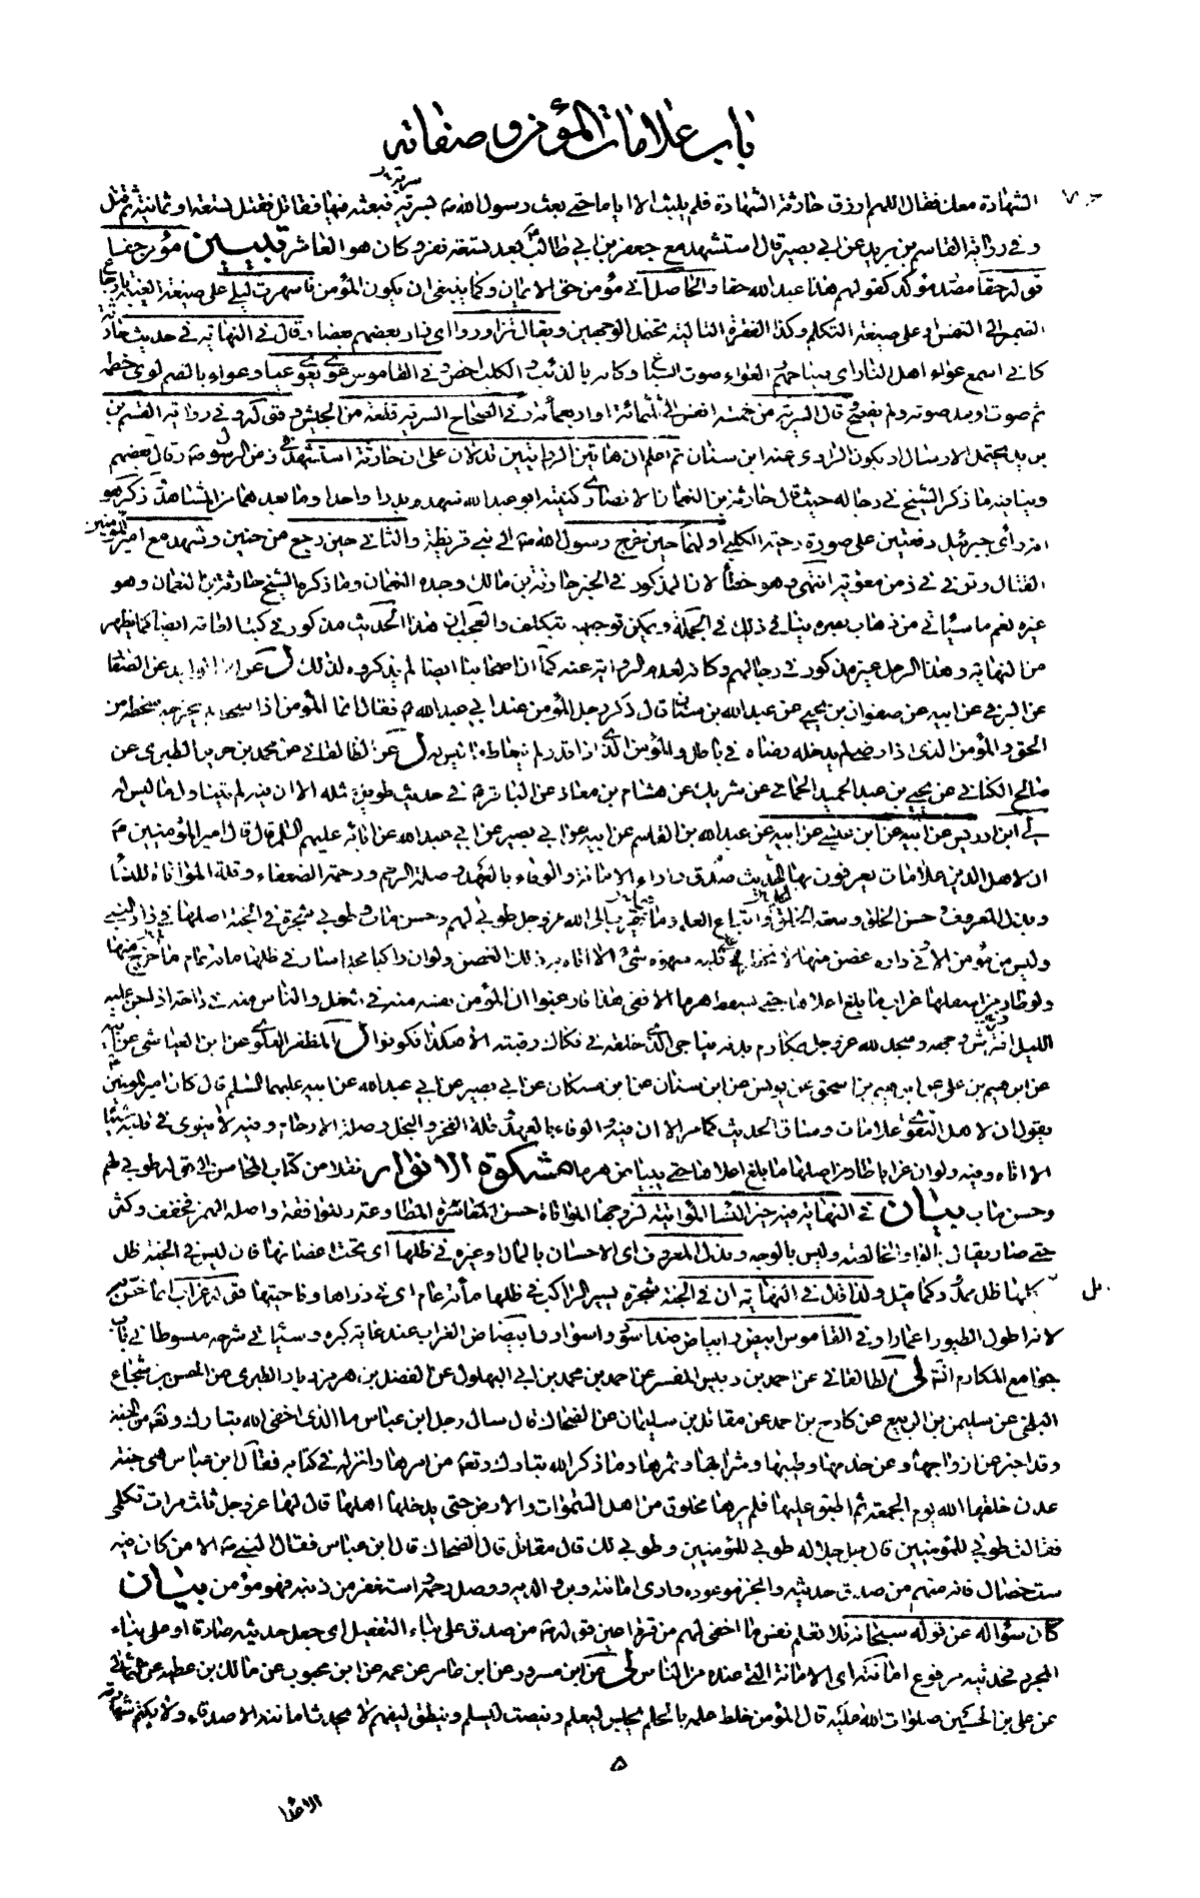 باب علامات المؤمن وصفاته
الشهادة معك فقال اللهم ارزق حارثة الشهادة فلم يلبث الا اياما حتى بعث رسول الله ص بسرية فبعثه فيها فقاتل فقتل تسعة او ثمانية ثم قتل
وفي رواية القاسم بن بريد عن ابي بصير قال استشهد مع جعفر بن ابي طالب بعد تسعة نفر وكان هو العاشر تبيين مؤمن حقا
قوله حقا مصدر مؤكد كقولهم هذا عبد الله حقا والحاصل اني مؤمن حق الايمان وكما ينبغي ان يكون المؤمن فاسهرت ليلي على صيغة الغيبة بارجاع
الضمير الى النفس او على صيغة التكلم وكذا الفقرة التالية تحتمل الوجهين ويقال تزاوروا اي زار بعضهم بعضا وقال في النهاية في حديث حارثة
كاني اسمع عواء اهل النار اي صياحهم العواء صوت السباع وكانه بالذئب والكلب اخص وفي القاموس عوى يعوي عيا وعواء بالضم لوى خطمه
ثم صوت او مد صوته ولم يفصح قال السرية من خمسة انفس الى ثلثمائة او اربعمائة وفي الصحاح السرية قطعة من الجيش قوله وفي رواية القسم بن
بريد يحتمل الارسال او يكون الراوي عنه ابن سنان ثم اعلم ان هاتين الروايتين تدلان على ان حارثة استشهد في زمن الرسول ص وقال بعضهم
وينافيه ما ذكر الشيخ في رجاله حيث قال حارثة بن النعمان الانصاري كنيته ابو عبد الله شهد بدرا واحدا وما بعدهما من المشاهد ذكر هو
انه رأى جبرئيل دفعتين على صورة دحية الكلبي اولهما حين خرج رسول الله ص الى بني قريظة والثاني حين رجع من حنين وشهد مع امير المؤمنين
القتال وتوفي في زمن معوية انتهى وهو خطأ لان المذكور في الخبر حارثة بن مالك وجده النعمان وما ذكره الشيخ حارثة بن النعمان وهو
غيره نعم ما سيأتي من ذهاب بصره ينافي ذلك في الجملة ويمكن توجيهه بتكلف والعجب ان هذا الحديث مذكور في كتب العامة ايضا كما يظهر
من النهاية وهذا الرجل غير مذكور في رجالهم وكانه لعدم الرواية عنه كما ان اصحابنا ايضا لم يذكروه لذلك ل عن ابن الوليد عن الصفار
عن البرقي عن ابيه عن صفوان بن يحيى عن عبد الله بن سنان قال ذكر رجل المؤمن عند ابي عبد الله ع فقال انما المؤمن اذا سخط لم يخرجه سخطه من
الحق والمؤمن الذي اذا رضي لم يدخله رضاه في باطل والمؤمن الذي اذا قدر لم يتعاط ما ليس له ل عن الطالقاني عن محمد بن جرير الطبري عن
صالح الكناني عن يحيى بن عبد الحميد الحماني عن شريك عن هشام بن معاذ عن الباقر ع في حديث طويل مثله الا ان فيه لم يتناول ما ليس له
لي ابن ادريس عن ابيه عن ابن عيسى عن ابيه عن عبد الله بن القاسم عن ابيه عن ابي بصير عن ابي عبد الله عن ابائه عليهم السلم قال قال امير المؤمنين ع
ان لاهل الدين علامات يعرفون بها صدق الحديث واداء الامانة والوفاء بالعهد وصلة الرحم ورحمة الضعفاء وقلة المؤاتاة للنساء
وبذل المعروف وحسن الخلق وسعة الخلق واتباع العلم وما يقرب الى الله عز وجل طوبى لهم وحسن مآب وطوبى شجرة في الجنة اصلها في دار النبي
وليس من مؤمن الا وفي داره غصن منها لا يخطر على قلبه شهوة شيء الا اتاه به ذلك الغصن ولو ان راكبا مجدا سار في ظلها مائة عام ما خرج منها
ولو طار من اسفلها غراب ما بلغ اعلاها حتى يسقط هرما الا ففي هذا فارغبوا ان المؤمن نفسه منه في شغل والناس منه في راحة اذا جن عليه
الليل افترش وجهه وسجد لله عز وجل بمكارم بدنه يناجي الذي خلقه في فكاك رقبته الا هكذا فكونوا ل المظفر العلوي عن ابن العياشي عن ابيه
عن ابرهيم بن علي عن ابرهيم بن اسحق عن يونس عن ابن سنان عن ابن مسكان عن ابي بصير عن ابي عبد الله عن ابيه عليهما السلم قال كان امير المؤمنين
يقول ان لاهل التقوى علامات وساق الحديث كما مر الا ان فيه والوفاء بالعهد وقلة الفخر والبخل وصلة الارحام وفيه لا ينوي في قلبه شيئا
الا اتاه وفيه ولو ان غرابا طار من اصلها ما بلغ اعلاها حتى يبياض هرما مشكوة الانوار نقلا من كتاب المحاسن الى قوله طوبى لهم
وحسن مآب بيان في النهاية فيه خير النساء المواتية لزوجها المواتاة حسن المطاوعة والموافقة واصله الهمز فخفف وكثر
حتى صار يقال بالواو الخالصة وليس بالوجه وبذل المعروف اي الاحسان بالمال وغيره في ظلها اي تحت اغصانها فان ليس في الجنة ظل
بل كلها ظل ممدود كما قيل ولذا قال في النهاية ان في الجنة شجرة يسير الراكب في ظلها مأته عام اي في ذراها وناحيتها قوله غراب انما خص به
لانه اطول الطيور اعمارا وفي القاموس ابيض وابياض ضد اسود واسواد وابيضاض الغراب عند غاية كبره وسيأتي شرحه مبسوطا في باب
جوامع المكارم انشاء لي الطالقاني عن احمد بن دبيس المفسر عن احمد بن محمد بن ابي البهلول عن الفضل بن هرمزديار الطبري عن الحسن بن شجاع
البلخي عن سليمن بن الربيع عن كادح بن احمد عن مقاتل بن سليمان عن الضحاك قال سال رجل ابن عباس ما الذي اخفى الله تبارك وتعالى من الجنة
وقد اخبر عن ازواجها وعن خدمها وطيبها وشرابها وثمرها وما ذكر الله تبارك وتعالى من امرها وانزله في كتابه فقال ابن عباس هي جنة
عدن خلقها الله يوم الجمعة ثم اطبق عليها فلم يرها مخلوق من اهل السموات والارض حتى يدخلها اهلها قال لها عز وجل ثلث مرات تكلمي
فقالت طوبى للمؤمنين قال جل جلاله طوبى للمؤمنين وطوبى لك قال مقاتل قال الضحاك قال ابن عباس فقال النبي ص الا من كان فيه
ست خصال فانه منهم من صدق حديثه وانجز موعوده وادى امانته وبر والديه ووصل رحمه واستغفر من ذنبه فهو مؤمن بيان
كان سؤاله عن قوله سبحانه فلا تعلم نفس ما اخفي لهم من قرة اعين قوله ص من صدق على بناء التفعيل اي جعل حديثه صادقا او على بناء
المجرد فحديثه مرفوع امانته اي الامانة التي عنده من الناس لي عن ابن مسرور عن ابن عامر عن عمه عن ابن محبوب عن مالك بن عطية عن الثمالي
عن علي بن الحسين صلوات الله عليه قال المؤمن خلط علمه بالحلم يجلس ليعلم وينصت ليسلم وينطق ليفهم لا يحدث امانته الاصدقاء ولا يكتم شهادته
۵
الاعدا